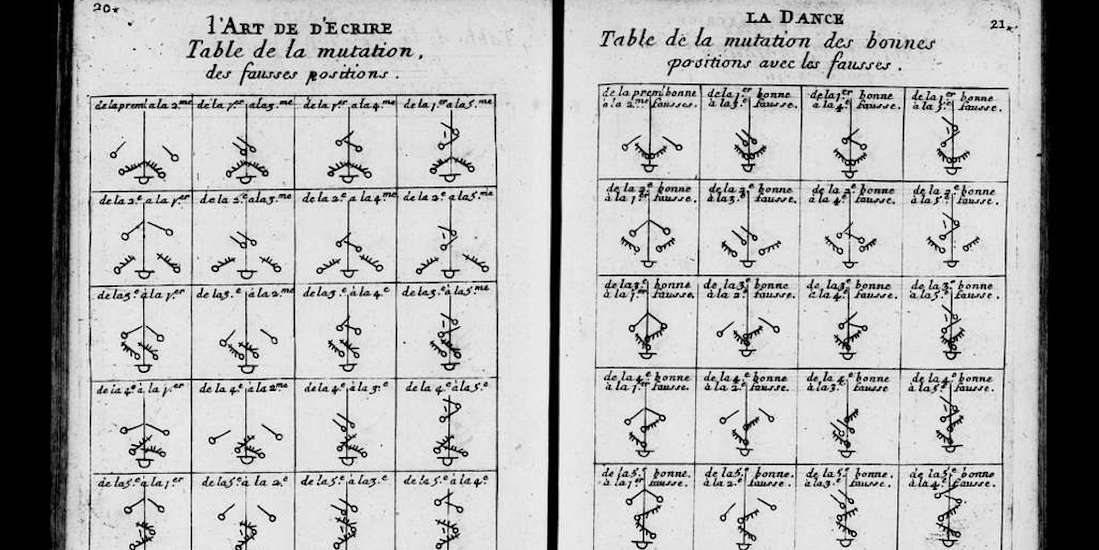 20*
l'ART DE D'ECRIRE
Table de la mutation,
des fausses positions.
de la prem! a la 2.me
de la 1.er a la 3.me
de la 1.er a la 4.me
de la 1.er a la 5.me
de la 2.e a la 1.er
de la 2.e a la 3.me
de la 2.e a la 4.me
de la 2.e a la 5.me
de la 3.e à la 1.er
de la 3.e à la 2.me
de la 3.e à la 4.e
de la 3.e à la 5.me
de la 4.e à la 1.er
de la 4.e à la 2.me
de la 4.e à la 3.e
de la 4.e à la 5.e
de la 5.e à la 1.er
de la 5.e à la 2.e
de la 5.e à la 3.e
de la 5.e à la 4.e
LA DANCE
21.
Table de la mutation des bonnes
positions avec les fausses.
de la prem! bonne
à la 2.me fausses.
de la 1.er bonne
à la 3.e fausse.
de la 1.er bonne
à la 4.e fausse.
de la 1.er bonne
à la 5.e fausse.
de la 2.e bonne
à la 1.er fausse.
de la 2.e bonne
à la 3.e fausse.
de la 2.e bonne
à la 4.e fausse.
de la 2.e bonne
à la 5.e fausse.
de la 3.e bonne
à la 1.er fausse.
de la 3.e bonne
à la 2.e fausse.
de la 3.e bonne
à la 4.e fausse.
de la 3.e bonne
à la 5.e fausse.
de la 4.e bonne
à la 1.er fausse.
de la 4.e bonne
à la 2.e fausse.
de la 4.e bonne
à la 3.e fausse
de la 4.e bonne
à la 5.e fausse.
de la 5.e bonne.
à la 1.er fausse.
de la 5.e bonne.
à la 2.e fausse.
de la 5.e bonne.
à la 3.e fausse.
de la 5.e bonne
à la 4.e fausse.